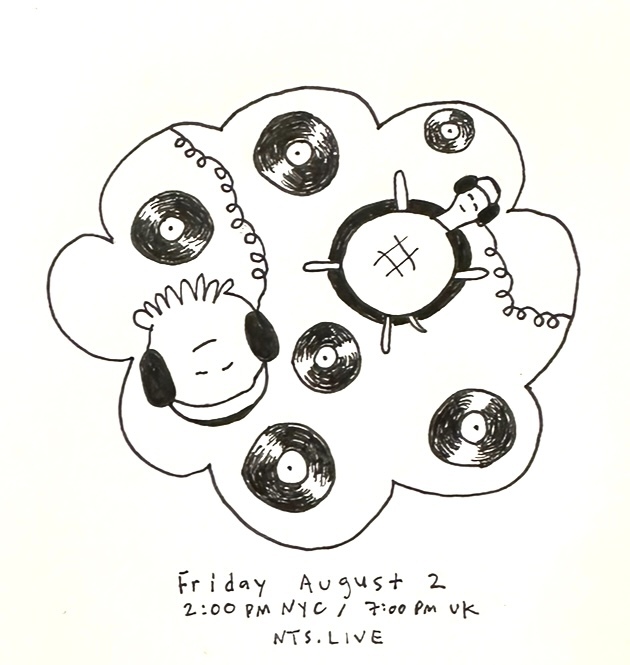 Friday August 2
2:00 PM NYC / 7:00 PM UK
NTS.LIVE